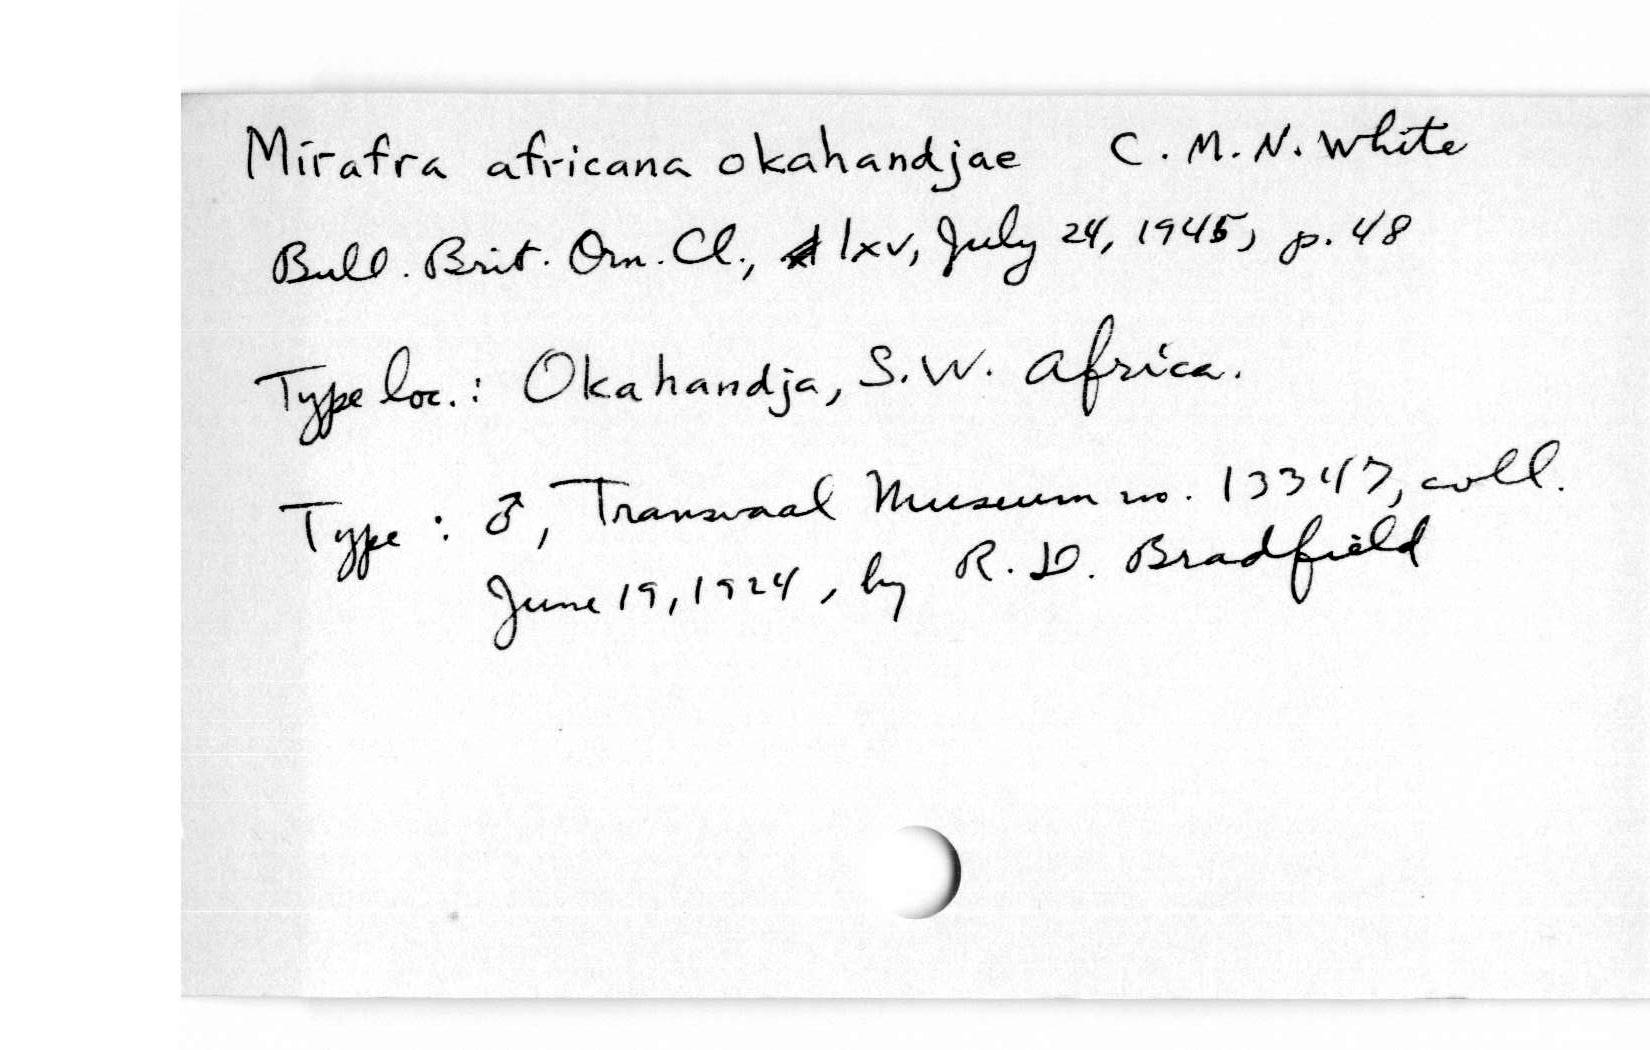 Mirafra africana okahandjae C. M. N. White
Bull. Brit. Orn. Cl., lxv, July 24, 1945, p. 48
Type loc.: Okahandja, S.W. Africa.
Type: ♂, Transvaal Museum no. 13347, coll.
June 19, 1924, by R. D. Bradfield